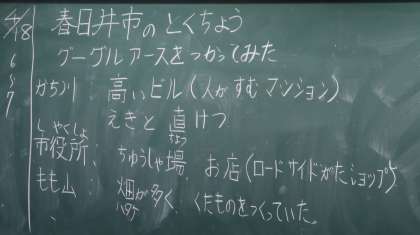 4/18
春日井市のとくちょう
グーグルアースをつかってみた
6
5
7
かちがわ 高いビル(人がすむマンション)
えきと直けつ
ちょっ
しやくしょ
市役所、ちゅうしゃ場、お店(ロードサイドがたショップ)
もも山 畑が多く、くだものをつくっていた。
ハタケ